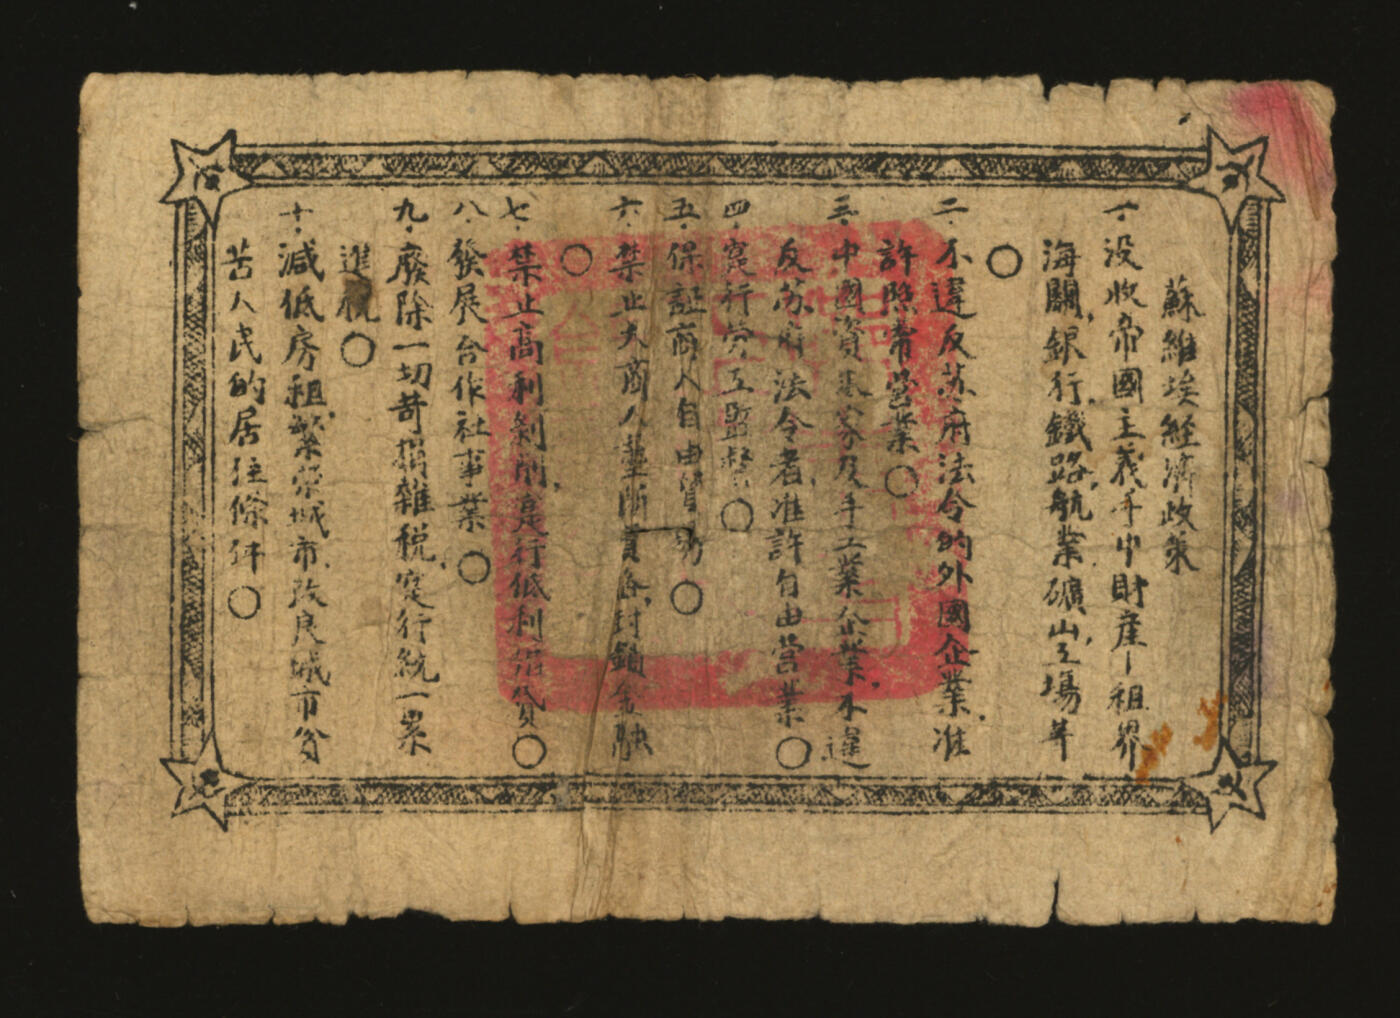 蘇維埃經濟政策
一.没收帝國主義手中財産—租界
海關,銀行,鐵路,航業,礦山,工場等
○
二.不違反苏府法令的外國企業.准
許照常營業○
三.中國資本家及手工業企業,不違
反苏府法令者,准許自由营業○
四.寔行劳工監督○
五.保証商人自由貿易○
六.禁止大商人壟断,封鎖金融
○
七.禁止高利剝削,寔行低利借貸○
八.發展合作社事業○
九.廢除一切苛捐雜税,寔行統一累
進税○
十.減低房租,繁榮城市,改良城市贫
苦人民的居住條件○